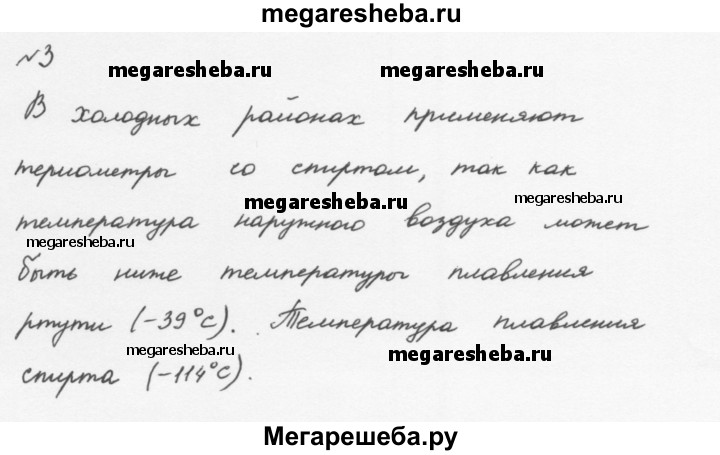 megaresheba.ru
№3
megaresheba.ru megaresheba.ru
В холодных районах применяют
термометры со спиртом, так как
megaresheba.ru megaresheba.ru
температура наружного воздуха может
megaresheba.ru
быть ниже температуры плавления
ртути (-39°С). Температура плавления
megaresheba.ru megaresheba.ru
спирта (-114°С).
Мегарешеба.ру